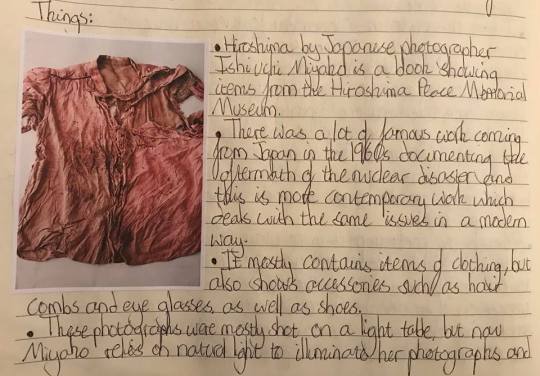 Things:
• Hiroshima by Japanese photographer
Ishiuchi Miyako is a book showing
items from the Hiroshima Peace Memorial
Museum.
• There was a lot of famous work coming
from Japan in the 1960s documenting the
aftermath of the nuclear disaster and
this is more contemporary work which
deals with the same issues in a modern
way.
• It mostly contains items of clothing, but
also shows accessories such as hair
combs and eye glasses, as well as shoes.
• These photographs were mostly shot on a light table, but now
Miyako relies on natural light to illuminate her photographs and